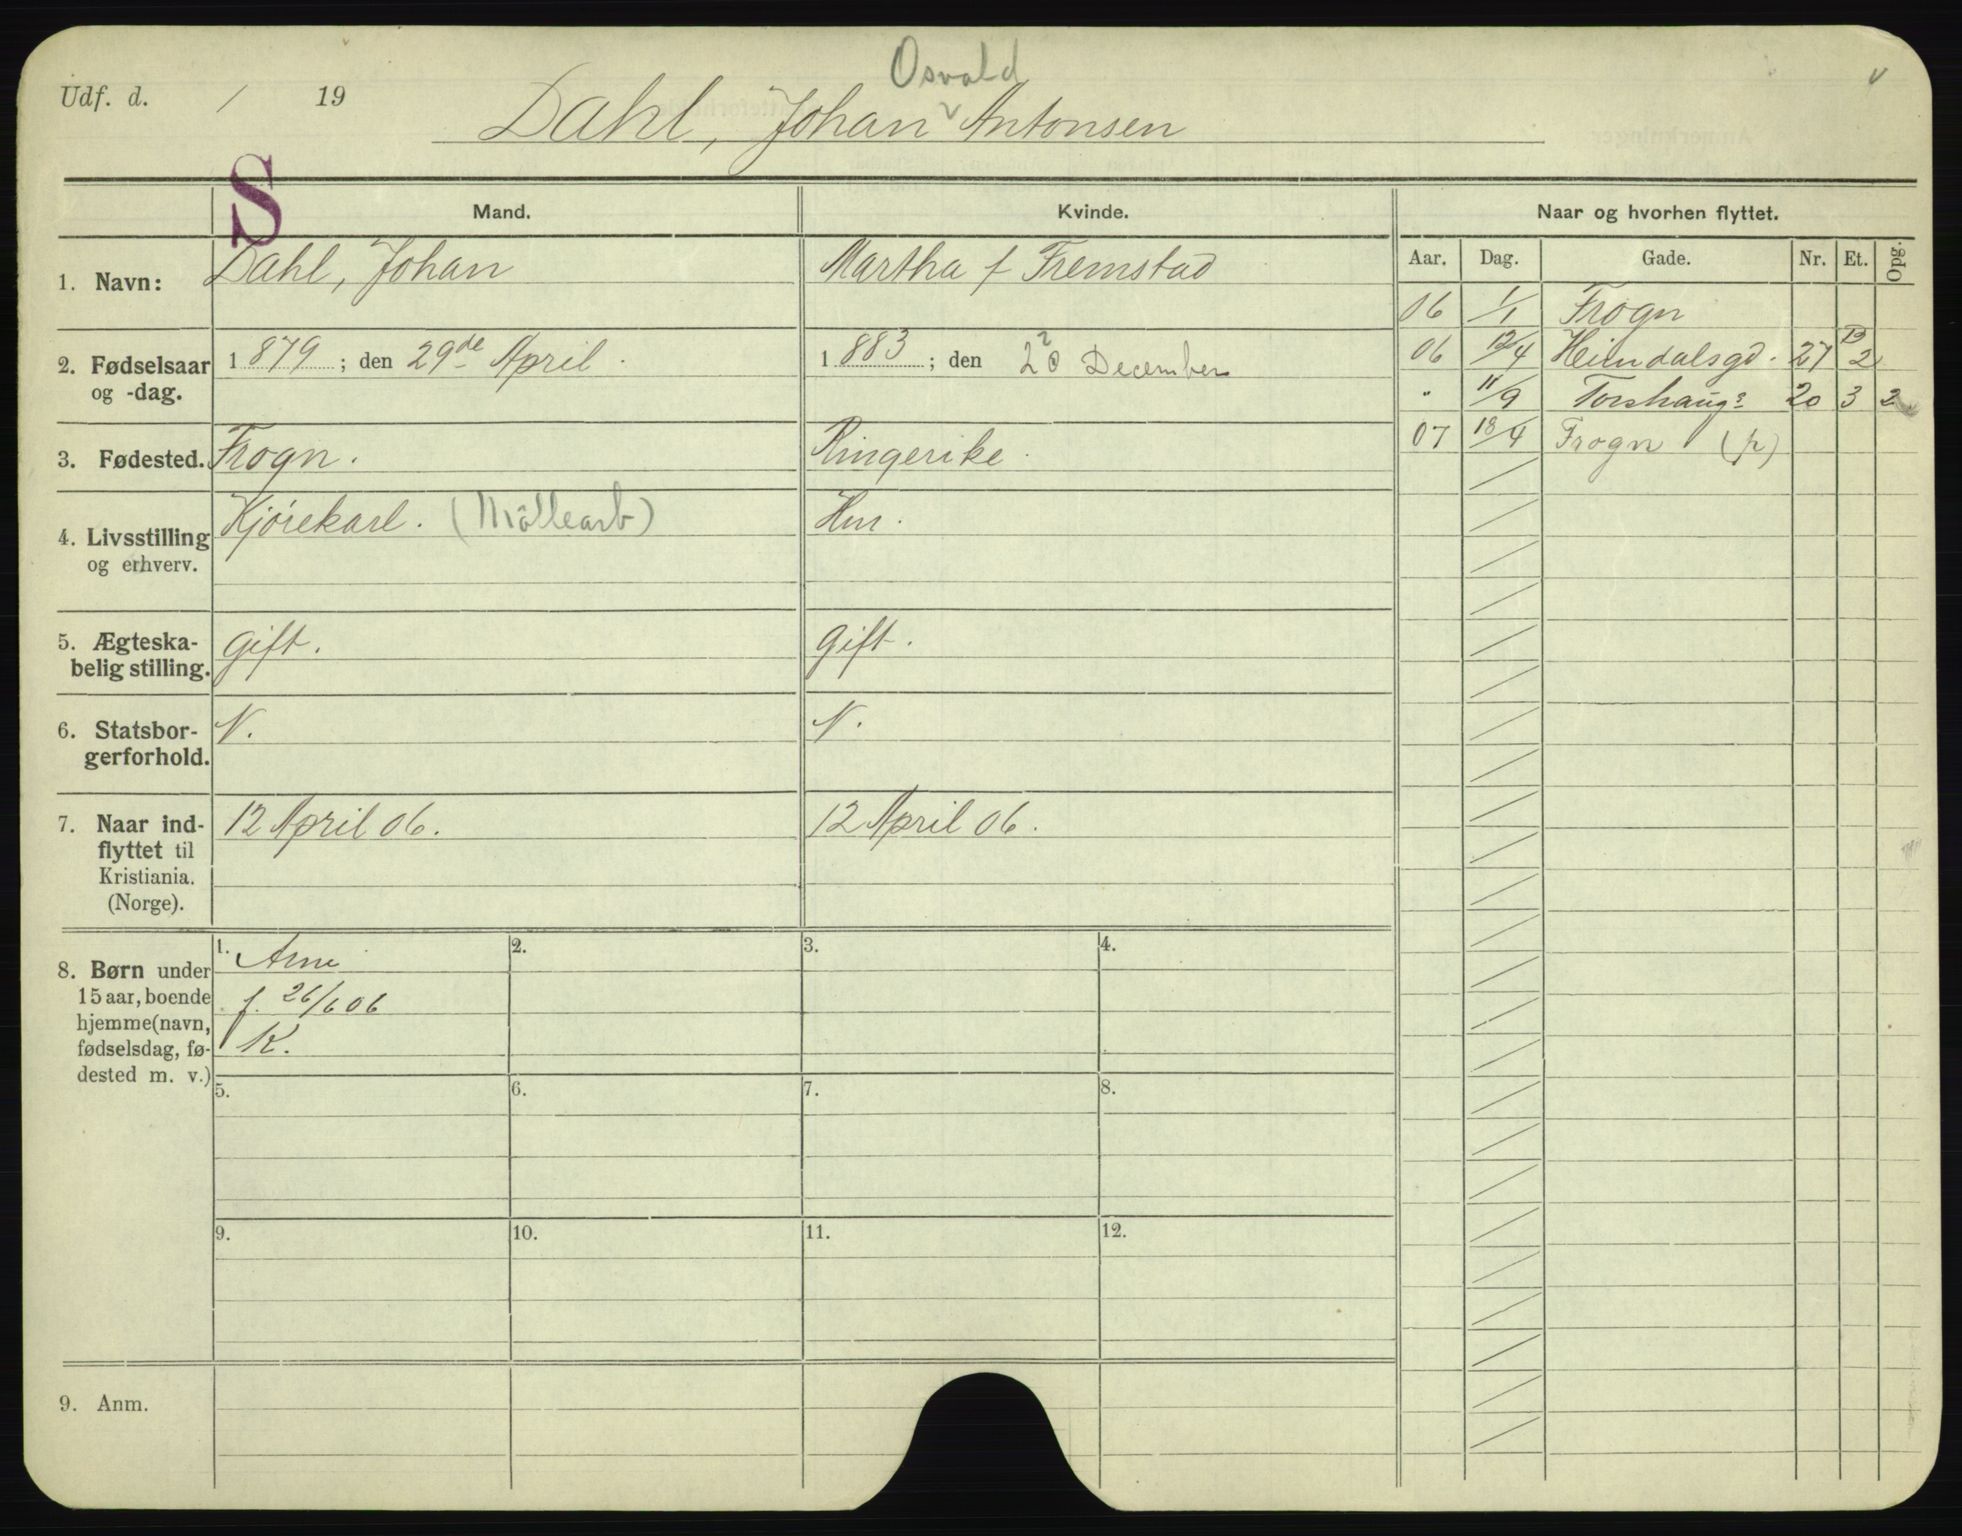 Osvald
Udf. d. / 19
Dahl, Johan Antonsen
S
Mand. Kvinde. Naar og hvorhen flyttet.
Aar. Dag. Gade. Nr. Et. Opg.
1. Navn: Dahl, Johan Martha f Fremstad
06 1/1 Frogn
2. Fødselsaar og -dag. 1879; den 29de April. 1883; den December
06 12/4 Heimdalsgd. 27 2
" 11/9 Torshaugg 20 3 2
07 18/4 Frogn (p)
3. Fødested. Frogn. Ringerike.
4. Livsstilling og erhverv. Kjørekarl. (Møllearb) Hur.
5. Ægteska-
belig stilling. gift. gift.
6. Statsbor-
gerforhold. N. N.
7. Naar ind-
flyttet til
Kristiania.
(Norge). 12 April 06. 12 April 06.
8. Børn under
15 aar, boende
hjemme (navn,
fødselsdag, fø-
dested m. v.)
1. Arne 2. 3. 4.
f. 26/6 06
K.
5. 6. 7. 8.
9. 10. 11. 12.
9. Anm.